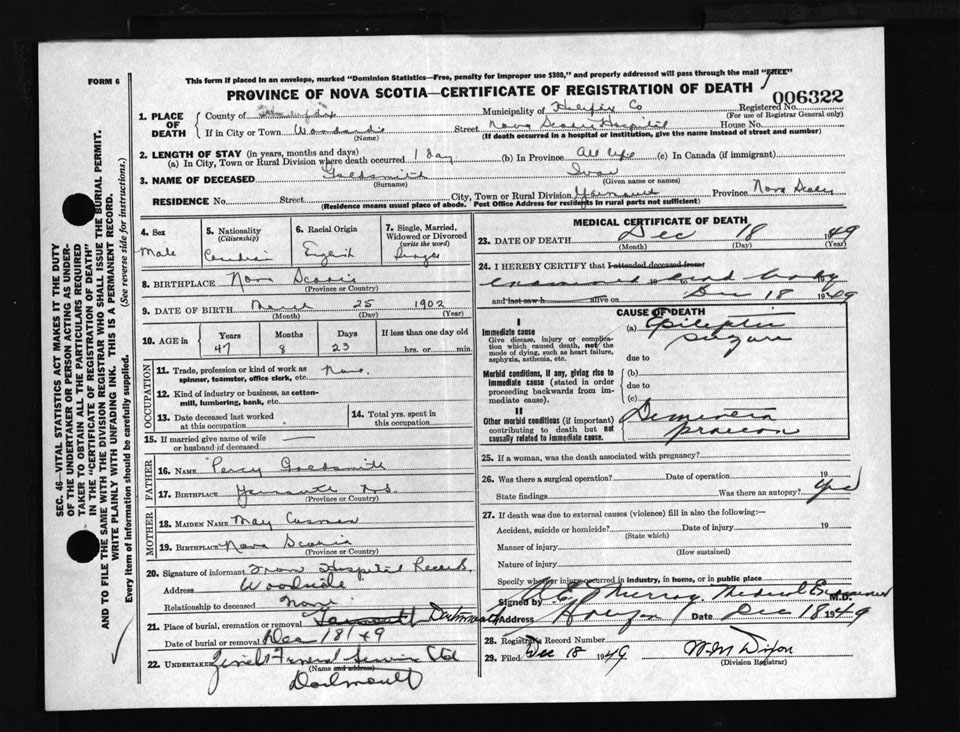 FORM 6
This form if placed in an envelope, marked "Dominion Statistics—Free, penalty for improper use $300," and properly addressed will pass through the mail "FREE"
PROVINCE OF NOVA SCOTIA—CERTIFICATE OF REGISTRATION OF DEATH
Registered No. 006322
(For use of Registrar General only)
1. PLACE OF DEATH
County of
Municipality of Halifax Co
If in City or Town Woodside
(Name)
Street Nova Scotia Hospital House No.
(If death occurred in a hospital or institution, give the name instead of street and number)
2. LENGTH OF STAY (in years, months and days)
(a) In City, Town or Rural Division where death occurred 1 day (b) In Province All life (c) In Canada (if immigrant)
3. NAME OF DECEASED Goldsmith Ivan
(Surname) (Given name or names)
RESIDENCE No. Street City, Town or Rural Division Yarmouth Province Nova Scotia
(Residence means usual place of abode. Post Office Address for residents in rural parts not sufficient)
4. Sex
Male
5. Nationality
(Citizenship)
Canadian
6. Racial Origin
English
7. Single, Married, Widowed or Divorced
(write the word)
Single
8. BIRTHPLACE Nova Scotia
(Province or Country)
9. DATE OF BIRTH March 25 1902
(Month) (Day) (Year)
10. AGE in
Years Months Days If less than one day old
47 8 23 hrs. or min.
OCCUPATION
11. Trade, profession or kind of work as spinner, teamster, office clerk, etc. None
12. Kind of industry or business, as cotton-mill, lumbering, bank, etc.
13. Date deceased last worked at this occupation
14. Total yrs. spent in this occupation
15. If married give name of wife or husband of deceased —
FATHER
16. NAME Percy Goldsmith
17. BIRTHPLACE Yarmouth N.S.
(Province or Country)
MOTHER
18. MAIDEN NAME May
19. BIRTHPLACE Nova Scotia
(Province or Country)
20. Signature of informant From Hospital Records.
Address Woodside
Relationship to deceased None
21. Place of burial, cremation or removal Yarmouth Dartmouth
Date of burial or removal Dec 18/49
22. UNDERTAKER Funeral Service Ltd
(Name and address)
Dartmouth
MEDICAL CERTIFICATE OF DEATH
23. DATE OF DEATH Dec 18 1949
(Month) (Day) (Year)
24. I HEREBY CERTIFY that I attended deceased from
examined dead body
and last saw h alive on Dec 18 1949
CAUSE OF DEATH
I
Immediate cause
Give disease, injury or complication which caused death, not the mode of dying, such as heart failure, asphyxia, asthenia, etc.
(a) Epileptic seizure
due to
Morbid conditions, if any, giving rise to immediate cause (stated in order proceeding backwards from immediate cause).
(b)
due to
(c)
II
Other morbid conditions (if important) contributing to death but not causally related to immediate cause.
Dementia praecox
25. If a woman, was the death associated with pregnancy?
26. Was there a surgical operation? Date of operation 19
State findings Was there an autopsy? Yes
27. If death was due to external causes (violence) fill in also the following:—
Accident, suicide or homicide? Date of injury 19
(State which)
Manner of injury
(How sustained)
Nature of injury
Specify whether injury occurred in industry, in home, or in public place
Signed by Murray, Medical Examiner M.D.
Address Halifax Date Dec 18 1949
28. Registrar's Record Number
29. Filed Dec 18 1949 W.M. Dixon
(Division Registrar)
SEC. 46—VITAL STATISTICS ACT MAKES IT THE DUTY
OF THE UNDERTAKER OR PERSON ACTING AS UNDER-
TAKER TO OBTAIN ALL THE PARTICULARS REQUIRED
IN THE "CERTIFICATE OF REGISTRATION OF DEATH"
AND TO FILE THE SAME WITH THE DIVISION REGISTRAR WHO SHALL ISSUE THE BURIAL PERMIT.
WRITE PLAINLY WITH UNFADING INK. THIS IS A PERMANENT RECORD.
Every item of information should be carefully supplied. (See reverse side for instructions.)